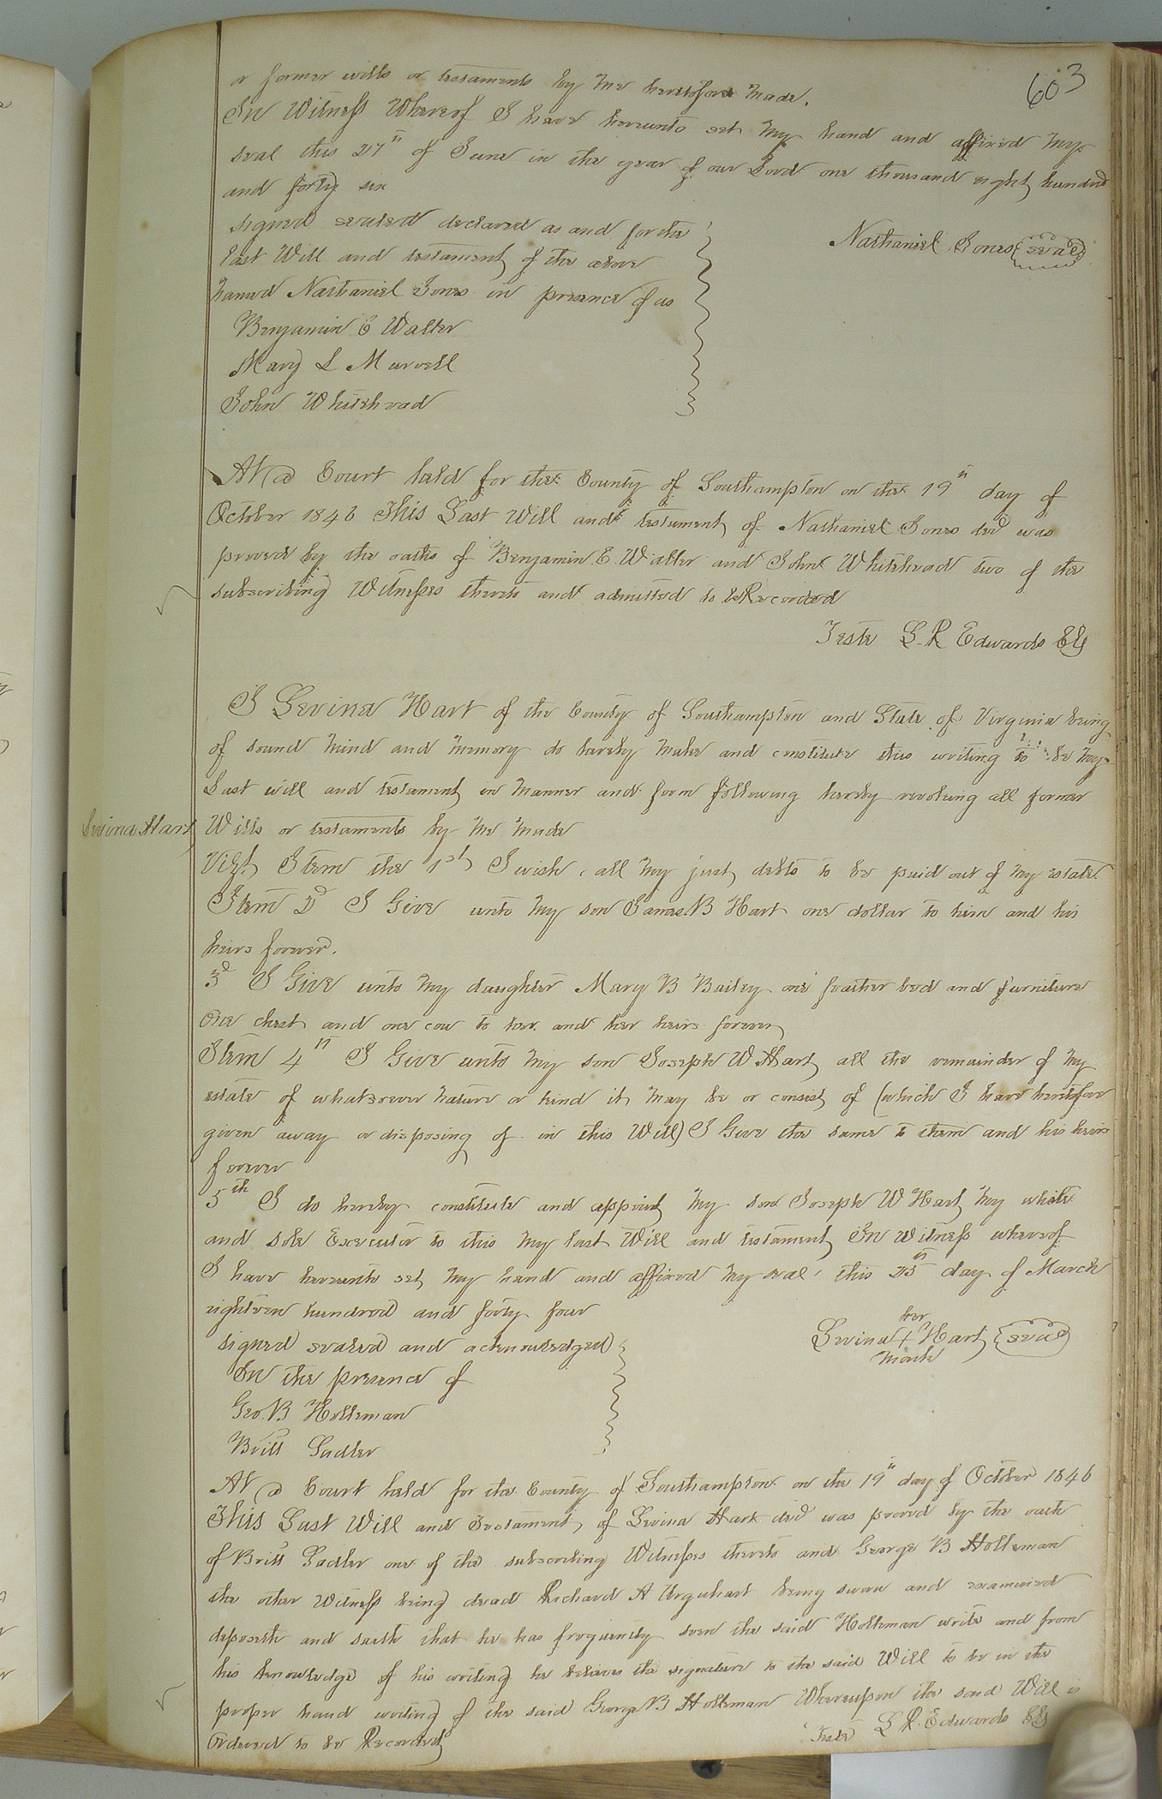 603
or former wills or testaments by me heretofore made.
In Witness Whereof I have hereunto set my hand and affixed my
seal this 27th of June in the year of our Lord one thousand eight hundred
and forty six
signed sealed declared as and for the
last Will and testament of the above
named Nathaniel Jones in presence of us
Nathaniel Jones (seal)
Benjamin E Waller
Mary L Murrell
John Whitehead
At a Court held for the County of Southampton on the 19th day of
October 1846 This Last Will and testament of Nathaniel Jones decd was
proved by the oaths of Benjamin E. Waller and John Whitehead two of the
subscribing Witnesses thereto and admitted to be Recorded
Teste L. R Edwards Clk
I Levina Hart of the County of Southampton and State of Virginia being
of sound mind and memory do hereby make and constitute this writing to be my
Last will and testament in manner and form following hereby revoking all former
Levina Hart
Wills or testaments by me made
Vizt. Item the 1st I wish all my just debts to be paid out of my estate
Item 2d I Give unto my son James B Hart one dollar to him and his
heirs forever.
3d I Give unto my daughter Mary B Bailey one feather bed and furniture
One chest and one cow to her and her heirs forever
Item 4th I Give unto my son Joseph W Hart all the remainder of my
estate of whatsoever nature or kind it may be or consist of (which I have heretofore
given away or disposing of in this Will) I Give the same to them and his heirs
forever
5th I do hereby constitute and appoint my son Joseph W Hart my whole
and sole Executor to this my last Will and testament In Witness whereof
I have hereunto set my hand and affixed my seal this 25th day of March
eighteen hundred and forty four
signed sealed and acknowledged
In the presence of
her
Levina + Hart (seal)
mark
Geo. B Holleman
Britt Sadler
At a Court held for the County of Southampton on the 19th day of October 1846
This Last Will and Testament of Levina Hart decd was proved by the oath
of Britt Sadler one of the subscribing Witnesses thereto and George B Holleman
the other Witness being dead Richard A Urquhart being sworn and examined
deposeth and saith that he has frequently seen the said Holleman write and from
his knowledge of his writing he believes the signature to the said Will to be in the
proper hand writing of the said George B Holleman Whereupon the said Will is
Ordered to be Recorded
Teste L R. Edwards Clk